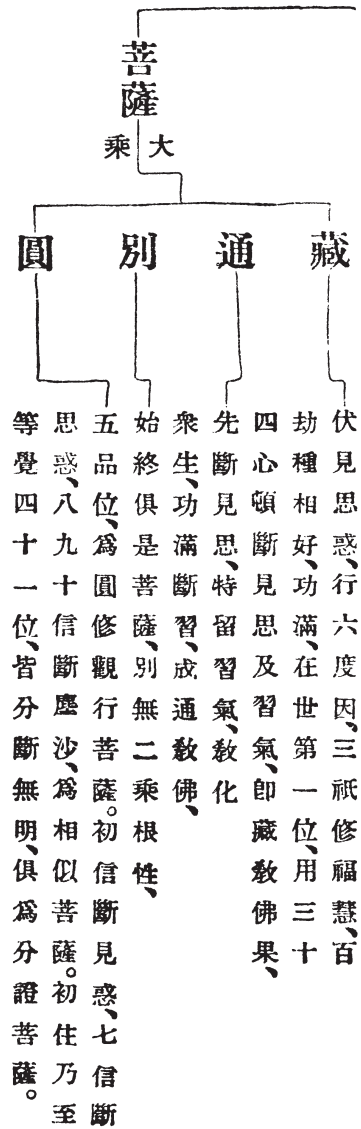 菩薩
大乘
藏
通
別
圓
伏見思惑、行六度因、三祇修福慧、百
劫種相好、功滿、在世第一位、用三十
四心頓斷見思及習氣、卽藏教佛果、
先斷見思、特留習氣、教化
衆生、功滿斷習、成通教佛、
始終俱是菩薩、別無二乘根性、
五品位、爲圓修觀行菩薩。初信斷見惑、七信斷
思惑、八九十信斷塵沙、爲相似菩薩。初住乃至
等覺四十一位、皆分斷無明、俱爲分證菩薩。